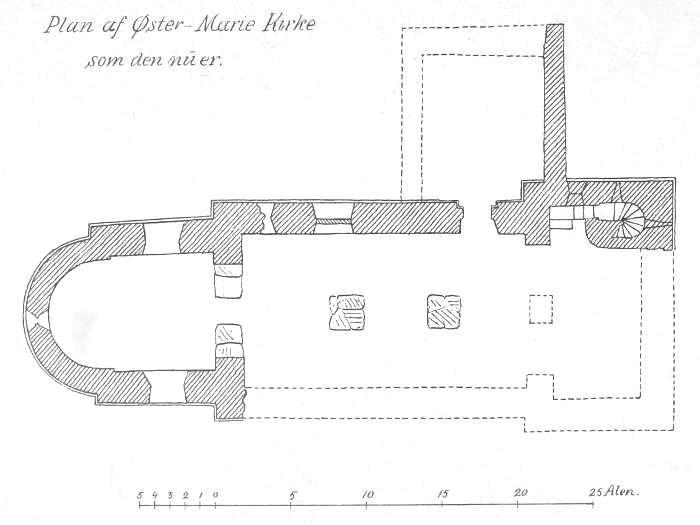 Plan af Øster-Marie Kirke
som den nu er.
5 4 3 2 1 0 5 10 15 20 25 Alen.